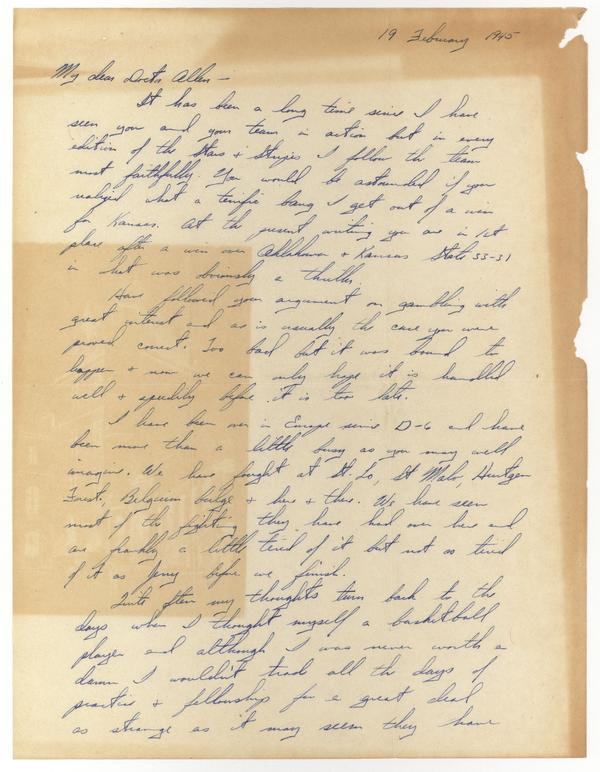 19 February 1945
My dear Doctor Allen —
It has been a long time since I have
seen you and your team in action but in every
edition of the Stars + Stripes I follow the team
most faithfully. You would be astounded if you
realized what a terrific bang I get out of a win
for Kansas. At the present writing you are in 1st
place after a win over Oklahoma + Kansas State 33-31
in what was obviously a thriller.
Have followed your argument on gambling with
great interest and as is usually the case you were
proved correct. Too bad but it was bound to
happen + now we can only hope it is handled
well + speedily before it is too late.
I have been over in Europe since D-6 and have
been more than a little busy as you may well
imagine. We have fought at St. Lo, St Malo, Huertgen
Forest, Belgium bulge + here + there. We have seen
most of the fighting they have had over here and
are frankly a little tired of it but not as tired
of it as Jerry before we finish.
Quite often my thoughts turn back to the
days when I thought myself a basketball
player and although I was never worth a
damn I wouldn't trade all the days of
practice + fellowship for a great deal
as strange as it may seem they have